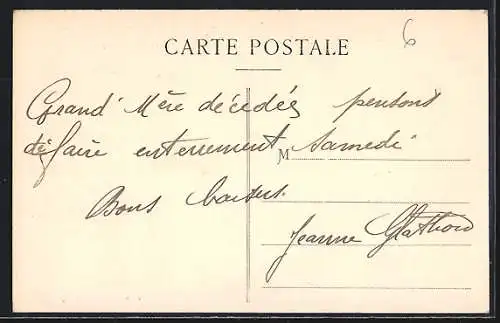 6
CARTE POSTALE
Grand' Mère décédés pensons
de faire enterrement Samedi
M
Bons baisers.
Jeanne